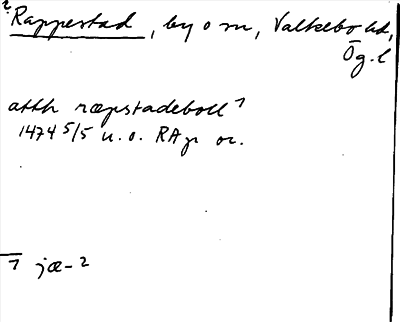 2. Rappestad, by o sn, Valkebo hd,
Ög. l
atth ræpstadeboll 1
1474 5/5 u.o. RAp or.
1 jæ- 2